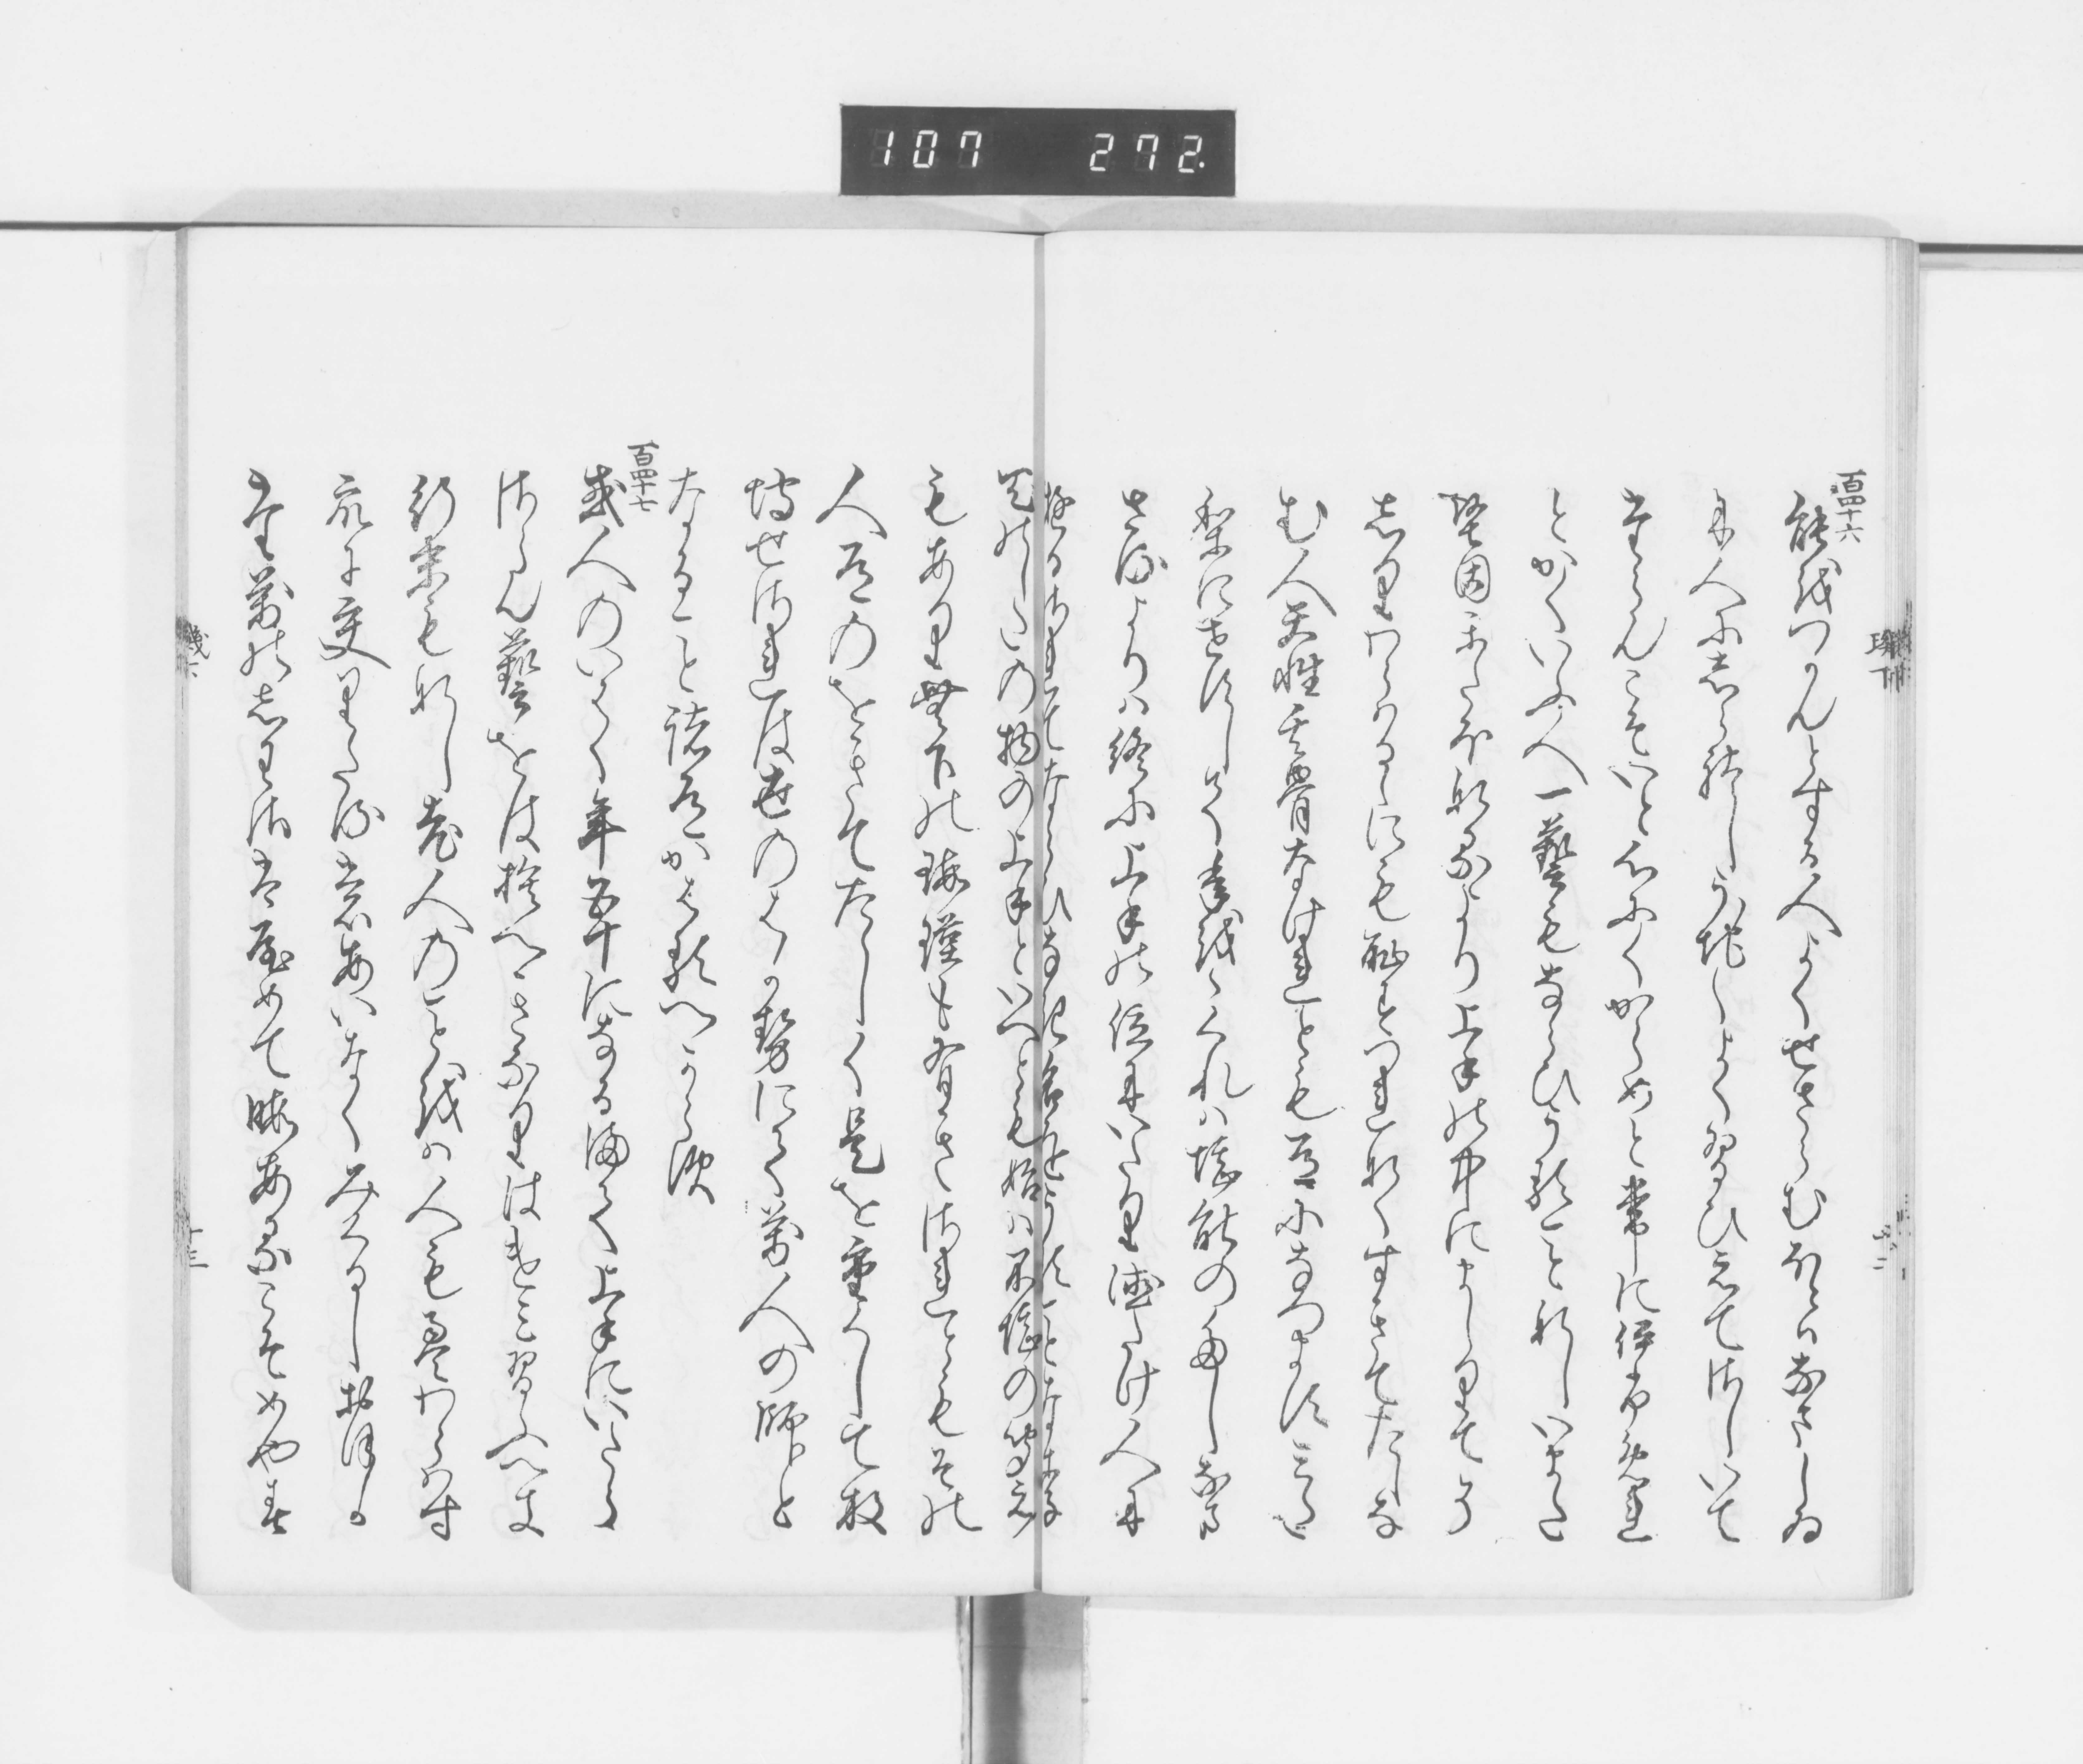 百四十六
能をつかんとする人よくせさらむほとはなましゐ
に人にしられしうちうちよく習ひえてさしいて
たらんこそいと心にくからめと常にいふめれ
とかくいふ人一藝もならひうることなしいまた
堅固かたほなるより上手の中にましりてそ
しりわらはるゝにも耻すつれなくすきてたしな
む人天性其骨なけれとも道になつますみた
りにせすして年をゝくれは堪能のたしなま
さるよりは終に上手の位にいたり徳たけ人に
ゆるされてならひなき名をうることなり
天下の物の上手といへとも始は不堪の聞え
もあり無下の瑕瑾も有きされともその
人道のをきてたゝしく是を重くして放
埒せされは世のはかせにて万人の師と
なること諸道かはるへからす
百四十七
或人のいはく年五十になるまて上手にいたら
さらん藝をは捨へきなりはけみ習ふへき
行末もなし老人のことをは人もえわらはす
衆に交りたるもあいなくみくるしおほか
た萬のしわさはやめて暇あるこそめやす